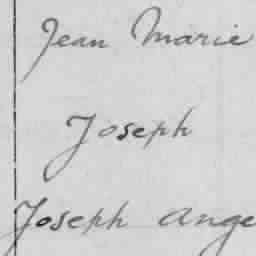 Jean Marie
Joseph
Joseph Ange